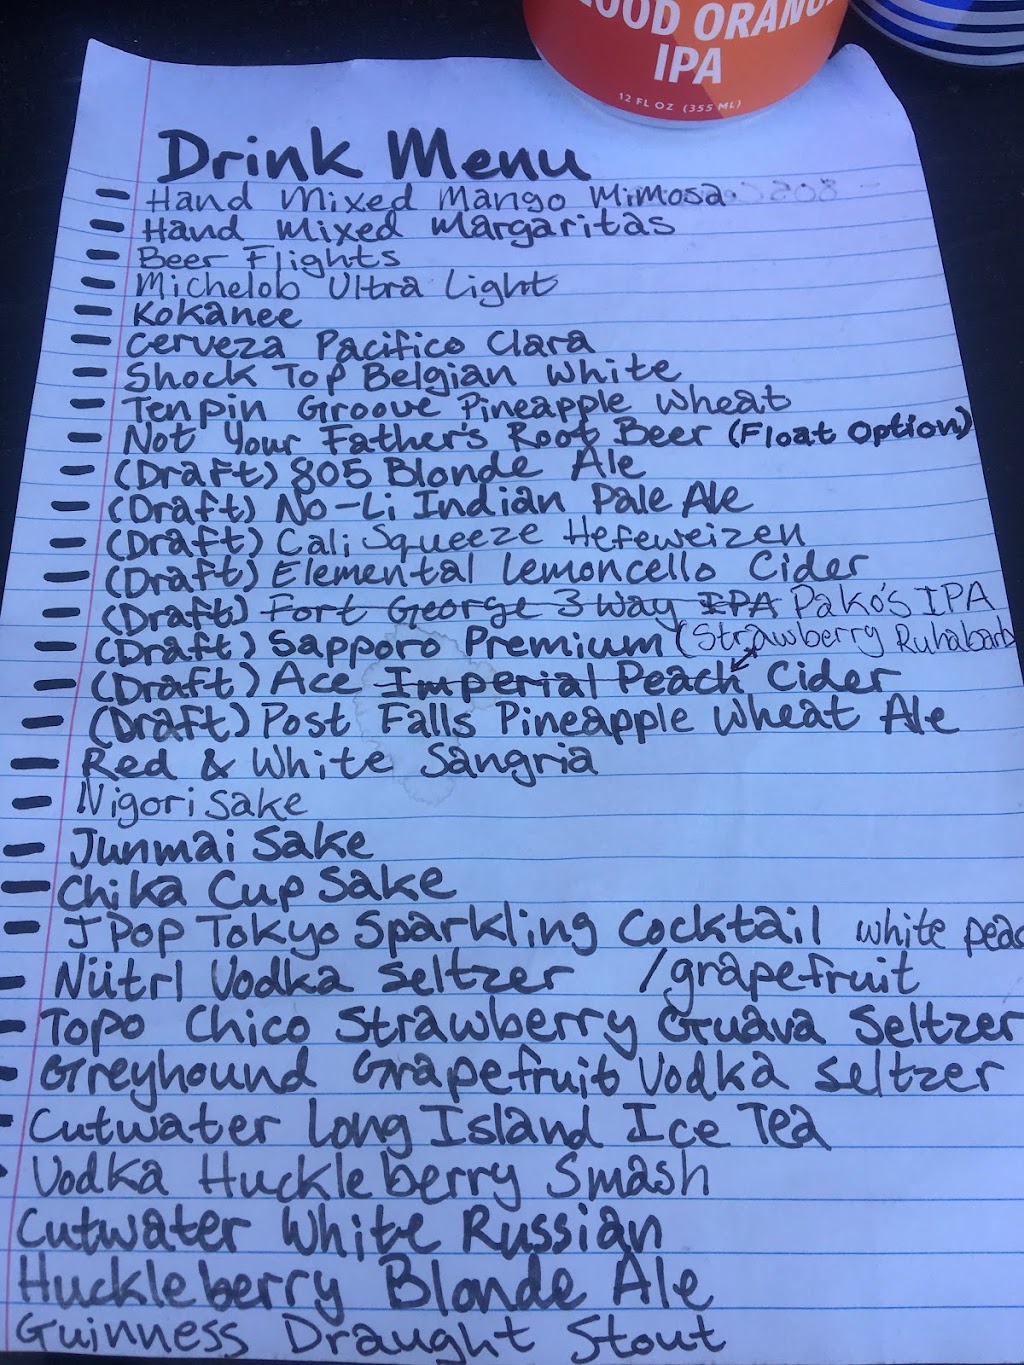 OOD ORANGE
IPA
12 FL OZ (355 ML)
Drink Menu
- Hand Mixed Mango Mimosa
- Hand Mixed Margaritas
- Beer Flights
- Michelob Ultra Light
- Kokanee
- Cerveza Pacifico Clara
- Shock Top Belgian White
- Tenpin Groove Pineapple Wheat
- Not Your Father's Root Beer (Float Option)
- (Draft) 805 Blonde Ale
- (Draft) No-Li Indian Pale Ale
- (Draft) Cali Squeeze Hefeweizen
- (Draft) Elemental Lemoncello Cider
- (Draft) Fort George 3 Way IPA Pako's IPA
- (Draft) Sapporo Premium (Strawberry Ruhabarb
- (Draft) Ace Imperial Peach Cider
- (Draft) Post Falls Pineapple Wheat Ale
- Red & White Sangria
- Nigori Sake
- Junmai Sake
- Chika Cup Sake
- J Pop Tokyo Sparkling Cocktail white peac
- Nütrl Vodka Seltzer /grapefruit
- Topo Chico Strawberry Guava Seltzer
- Greyhound Grapefruit Vodka Seltzer
- Cutwater Long Island Ice Tea
- Vodka Huckleberry Smash
Cutwater White Russian
Huckleberry Blonde Ale
Guinness Draught Stout